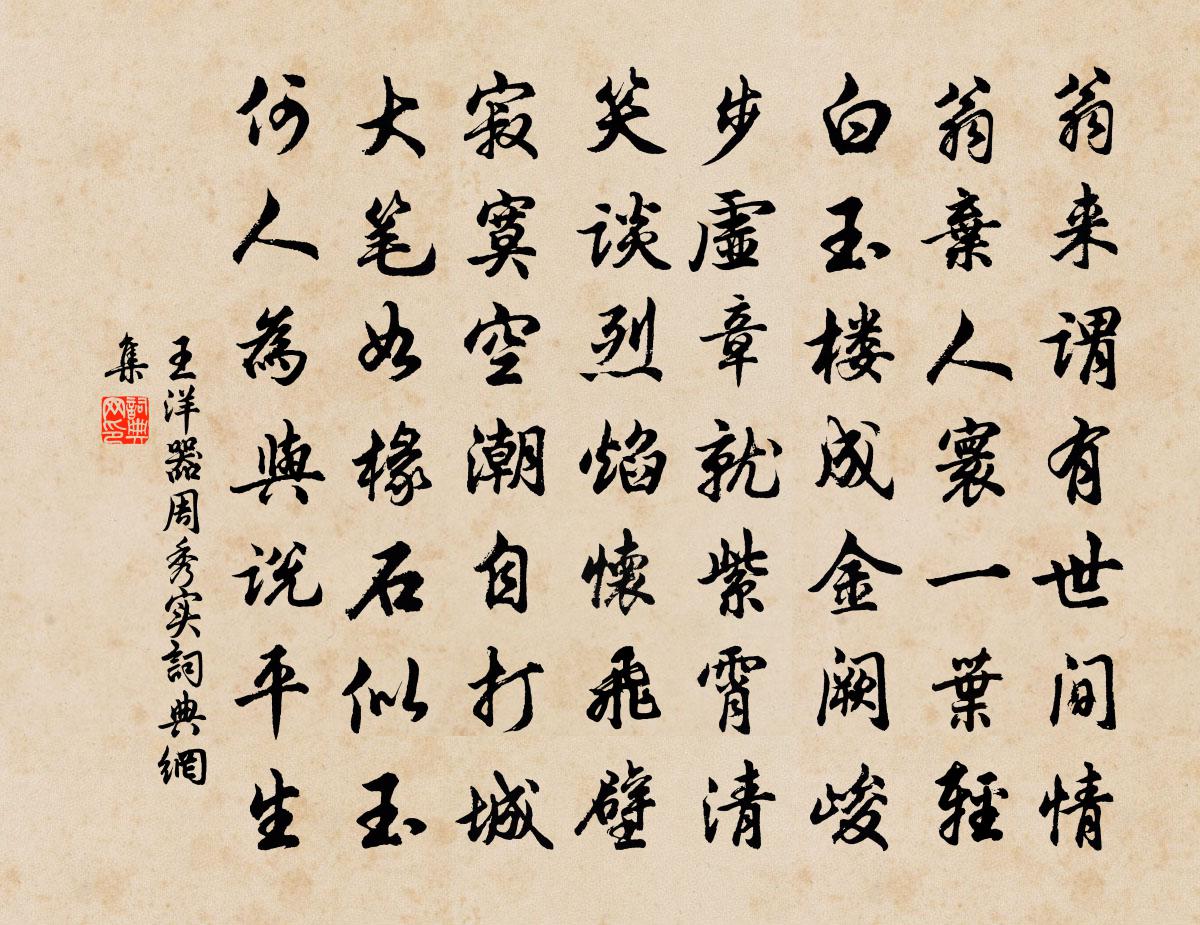 翁来谓有世间情
翁棄人寰一葉輕
白玉楼成金阙峻
步虚章就紫霄清
笑谈烈焰懷飛壁
寂寞空潮自打城
大笔如椽石似玉
何人為與说平生
王洋器周秀实詞典網
集
詞典网印